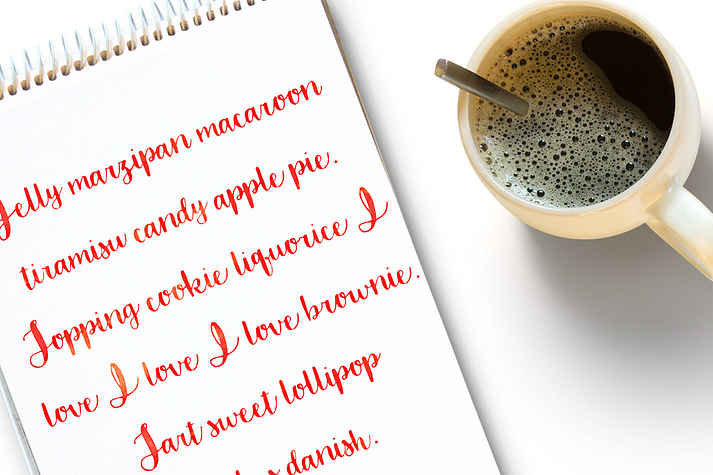 Jelly marzipan macaroon
tiramisu candy apple pie.
Topping cookie liquorice I
love I love I love brownie.
Tart sweet lollipop
danish.